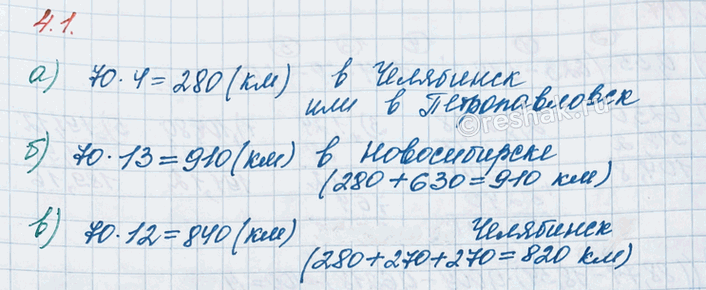 4.1.
а) 70·4=280(км) в Челябинск
или в Петропавловск
©reshak.ru
б) 70·13=910(км) в Новосибирске
(280+630=910 км)
в) 70·12=840(км) Челябинск
(280+270+270=820 км)